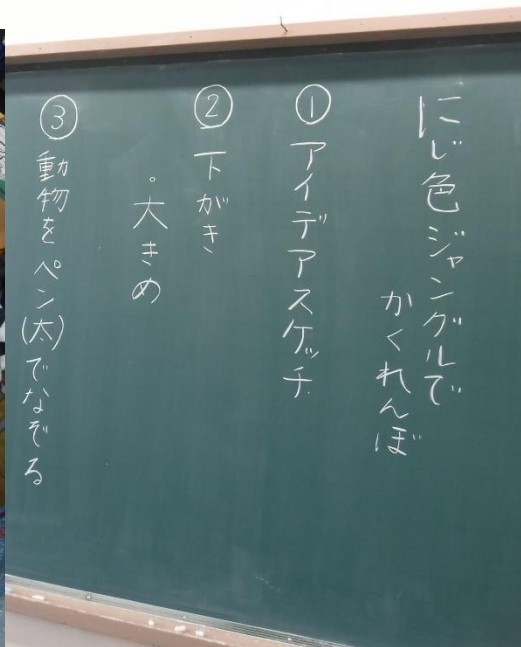 にじ色ジャングルで
かくれんぼ
①アイデアスケッチ
②下がき
。大きめ
③動物をペン(太)でなぞる